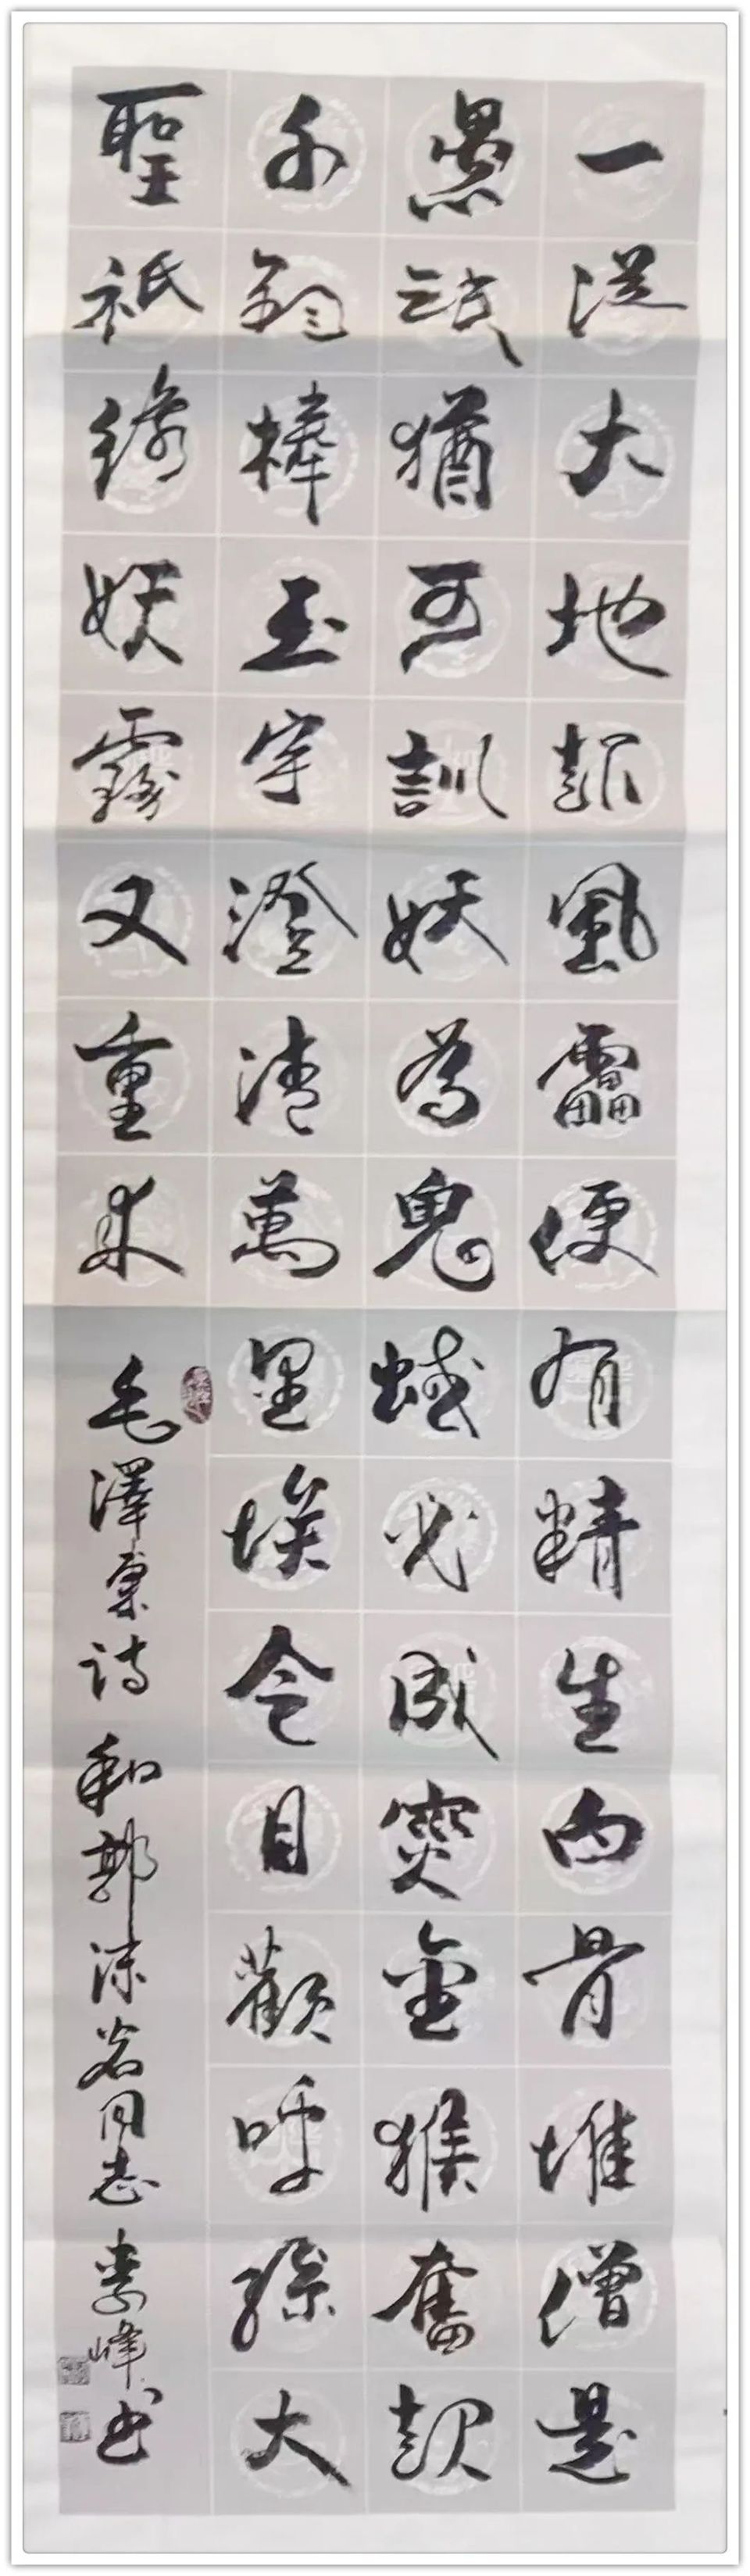 一從大地起風雷便有精生白骨堆僧是
愚氓猶可訓妖為鬼蜮必成災金猴奮起
千鈞棒玉宇澄清萬里埃今日歡呼孫大
聖祇緣妖霧又重來
毛澤東詩和郭沫若同志李峰书